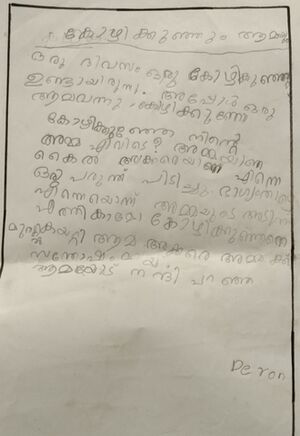 കോഴിക്കുഞ്ഞും ആമയും
ഒരു ദിവസം ഒരു കോഴികുഞ്ഞു
ഉണ്ടായിരുന്നു. അപ്പോൾ ഒരു
ആമവന്നു, കോഴിക്കുഞ്ഞേ
കോഴിക്കുഞ്ഞേ നിന്റെ
അമ്മ എവിടെ? അമ്മയാണ്
അക്കരെയാണ് എന്നെ
ഒരു പരുന്ത് പിടിച്ചു. ഭാഗ്യത്തിന്
എന്നെയൊന്ന് അമ്മയുടെ അടുത്ത്
എത്തിക്കാമോ കോഴിക്കുഞ്ഞിനെ
ആമ അക്കരെ
സന്തോഷം
ആമയോട് നന്ദി പറഞ്ഞു
Deron